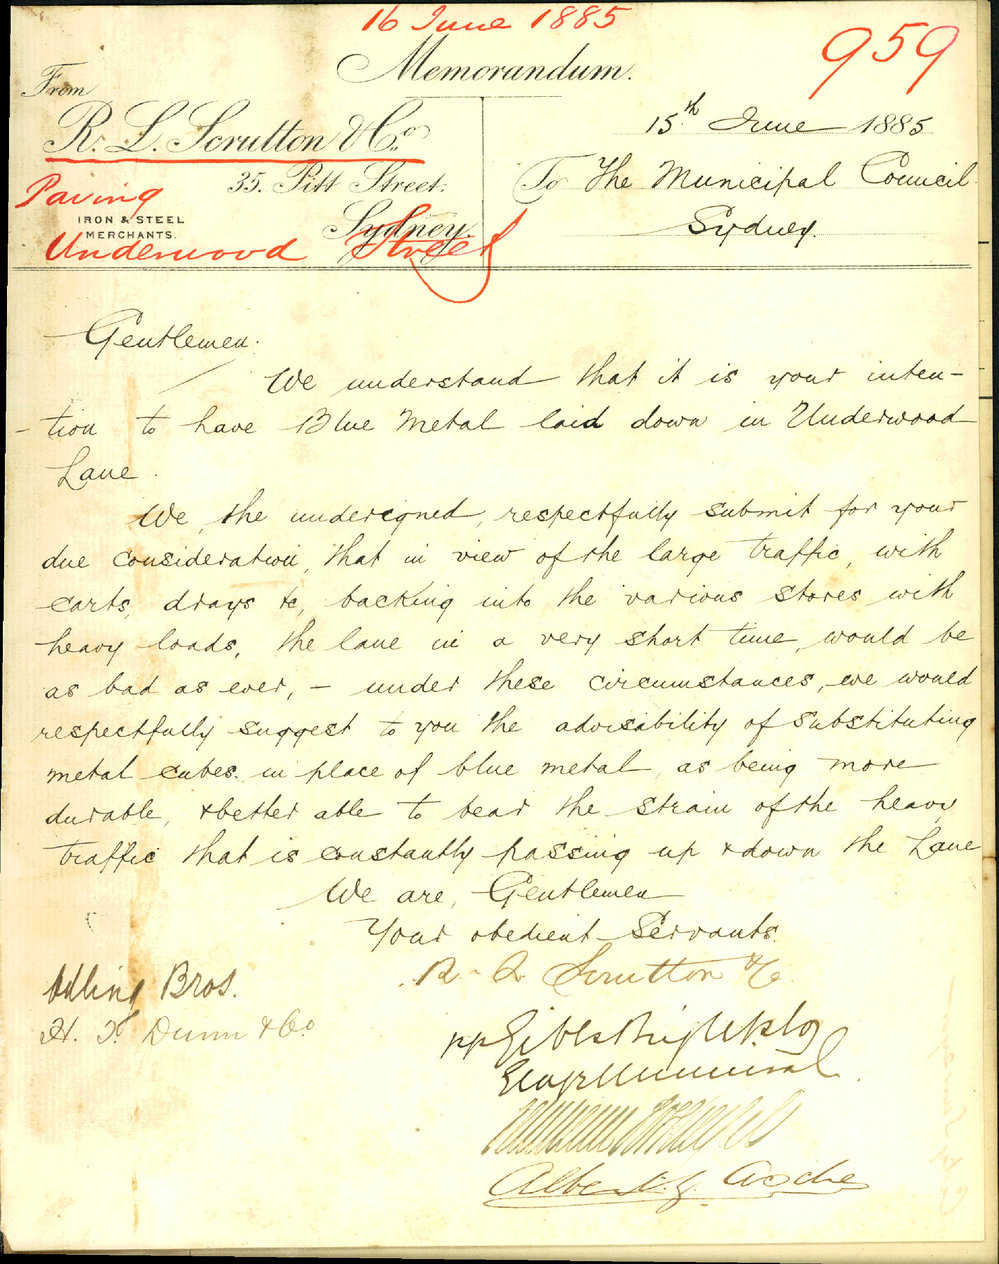 16 June 1885
959
Memorandum.
From
R. L. Scrutton & Co.
15th June 1885
35. Pitt Street.
To The Municipal Council
Paving
IRON & STEEL
MERCHANTS.
Sydney.
Sydney.
Underwood Street
Gentlemen.
We understand that it is your inten-
-tion to have Blue Metal laid down in Underwood
Lane.
We, the undersigned, respectfully submit for your
due consideration, that in view of the large traffic, with
carts, drays &c, backing into the various stores with
heavy loads, the lane in a very short time, would be
as bad as ever, - under these circumstances, we would
respectfully suggest to you the advisability of substituting
metal cubes in place of blue metal, as being more
durable, & better able to bear the strain of the heavy
traffic that is constantly passing up & down the Lane
We are, Gentlemen
Your obedient Servants
R. L. Scrutton & Co
Adling Bros.
H. F. Dunn & Co.
pp Gibbs Bright & Co
Albert